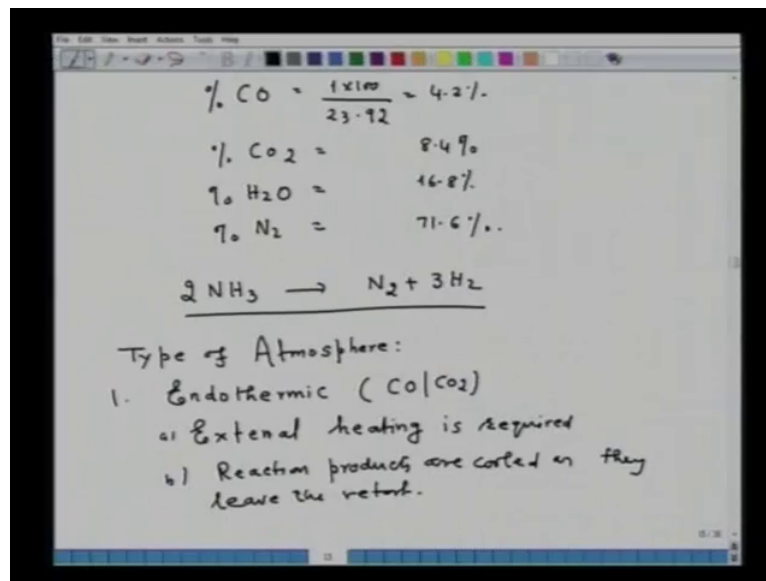 File Edit View Insert Actions Tools Help
% CO = 1x100 / 23.92 = 4.2%.
% CO2 = 8.4%
% H2O = 16.8%
% N2 = 71.6%.
2 NH3 → N2 + 3H2
Type of Atmosphere:
1. Endothermic ( CO|CO2)
a) Extenal heating is required
b) Reaction products are coled as they
leave the retort.